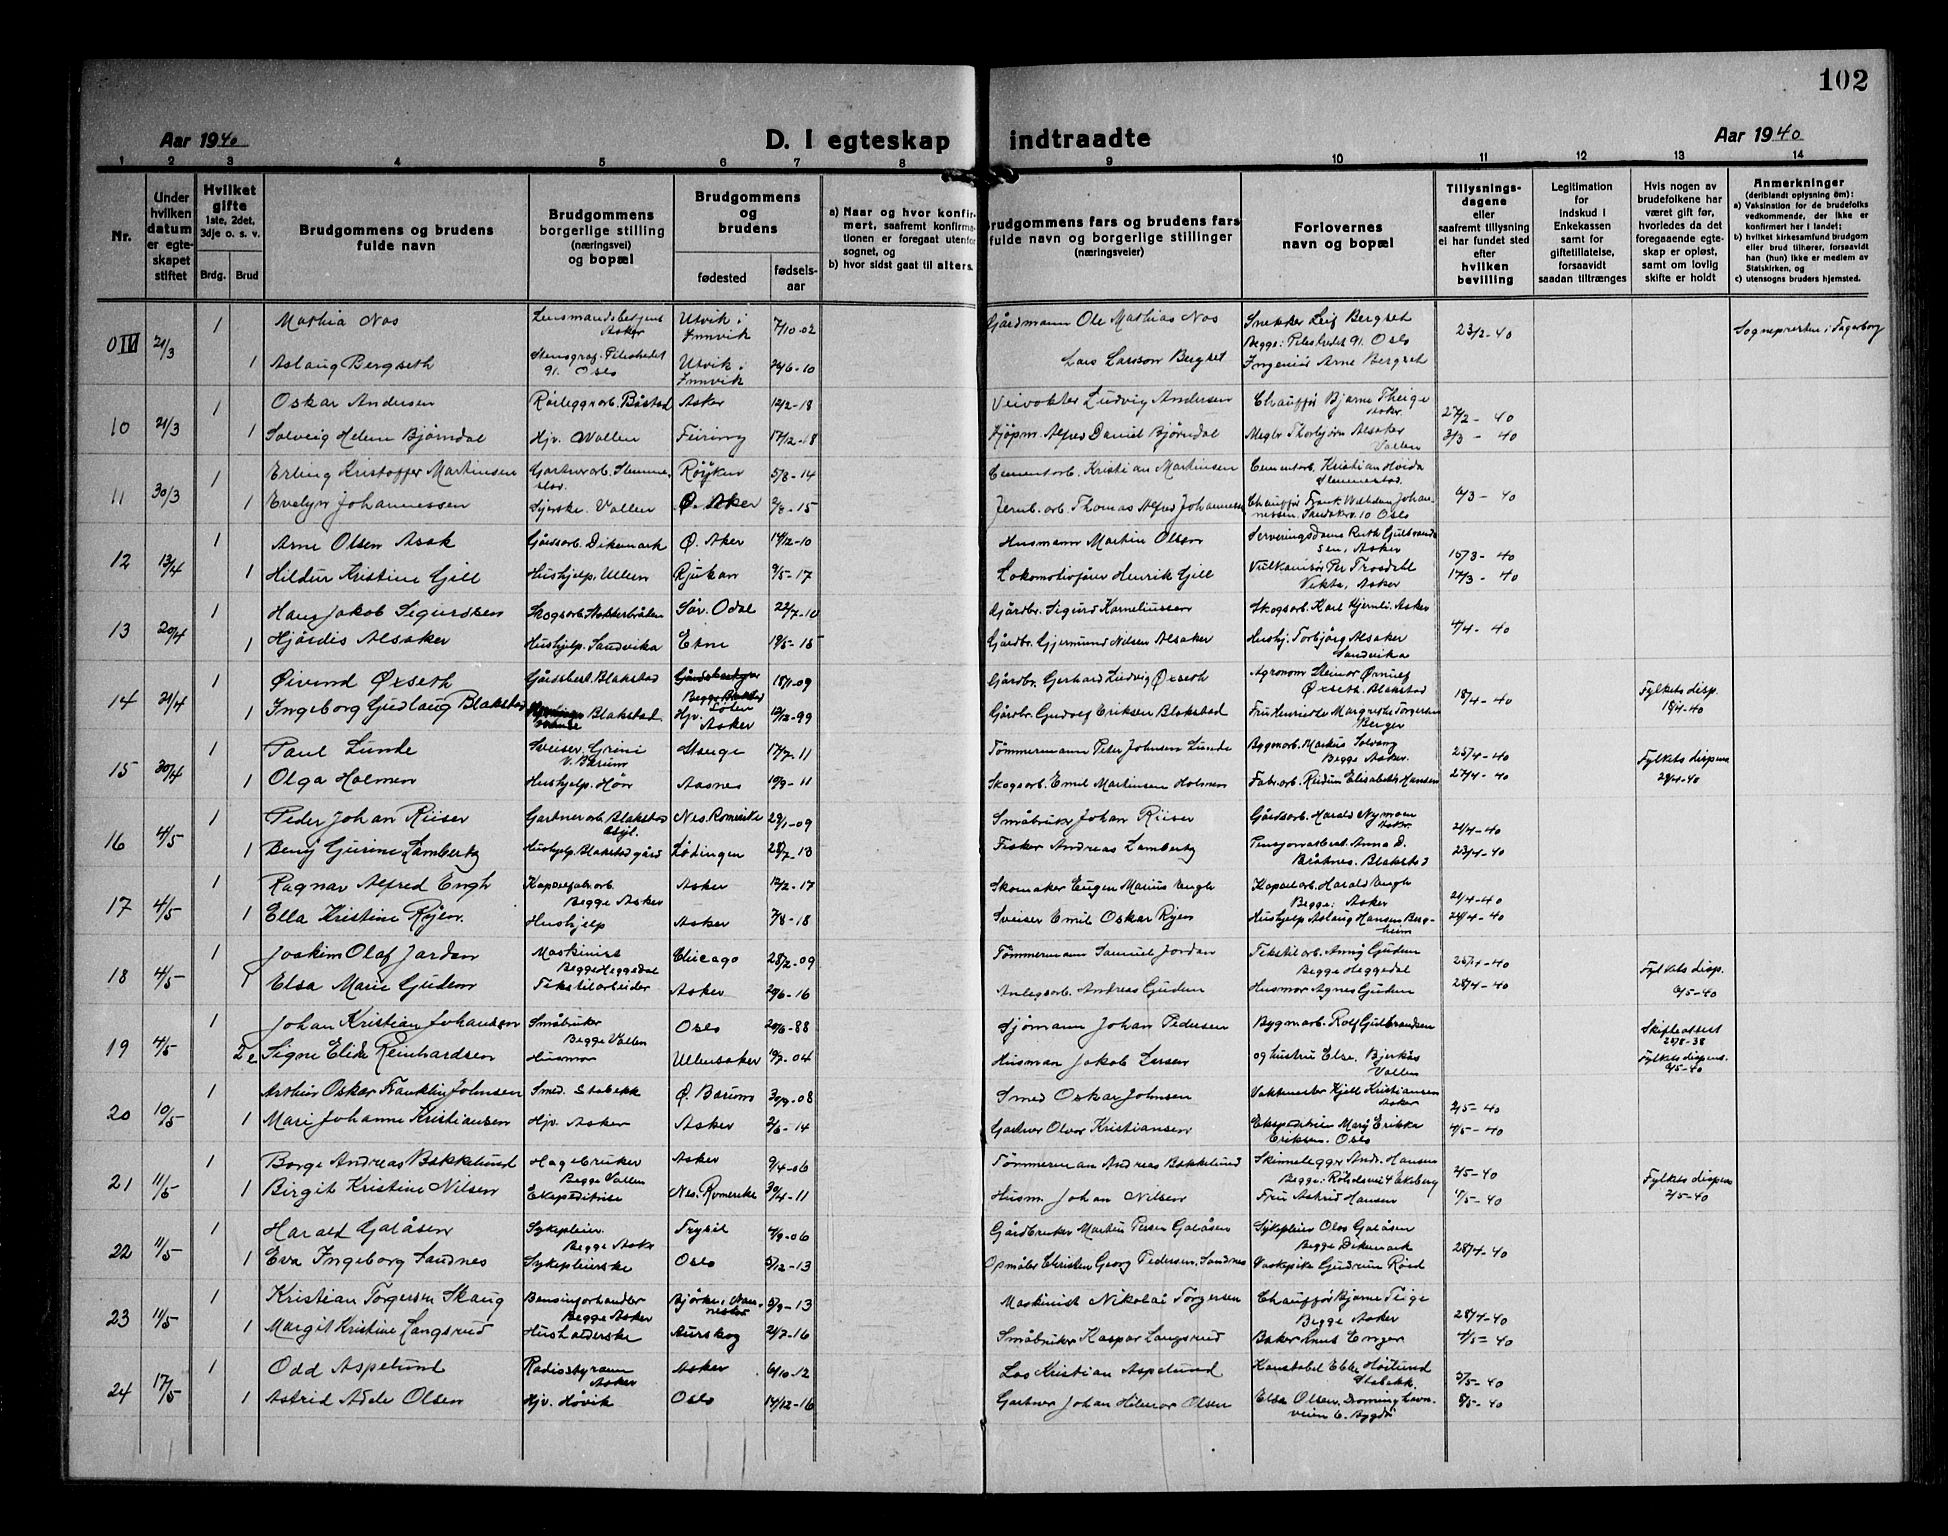 102
Aar 1940 D. I egteskap indtraadte Aar 1940
1 2 3 4 5 6 7 8 9 10 11 12 13 14
Nr.
Under hvilken datum er egteskapet stiftet
Hvilket gifte 1ste, 2det, 3dje o. s. v.
Brdg. Brud
Brudgommens og brudens fulde navn
Brudgommens borgerlige stilling (næringsvei) og bopæl
Brudgommens og brudens
fødested
fødselsaar
a) Naar og hvor konfirmert, saafremt konfirmationen er foregaat utenfor sognet, og
b) hvor sidst gaat til alters.
Brudgommens fars og brudens fars fulde navn og borgerlige stillinger (næringsveier)
Forlovernes navn og bopæl
Tillysningsdagene eller saafremt tillysning ei har fundet sted efter hvilken bevilling
Legitimation for Indskud i Enkekassen samt for giftetillatelse, forsaavidt saadan tiltrænges
Hvis nogen av brudefolkene har været gift før, hvorledes da det foregaaende egteskap er opløst, samt om lovlig skifte er holdt
Anmerkninger (deriblandt oplysning om):
a) Vaksination for de brudefolks vedkommende, der ikke er konfirmert her i landet;
b) hvilket kirkesamfund brudgom eller brud tilhører, forsaavidt han (hun) ikke er medlem av Statskirken, og
c) utensogns bruders hjemsted.
21/3 1 Mathia Nos Lensmandsbetjent Asker Utvik i Innvik 7/10-02 Gårdmann Ole Mathias Nos Snekker Leif Bergset 23/2-40 Sognepresten i Fagerborg
1 Aslaug Bergseth Stenograf. Pilestredet 91. Oslo Utvik i Innvik 26/6-10 Lars Larsson Bergset Begge: Pilestredet 91. Oslo Ingeniør Arne Bergset
10 21/3 1 Oskar Andersen Rørleggerarb. Båstad Asker 12/2-18 Veivokter Ludvig Andersen Chauffør Bjarne Theige Asker 27/2-40
1 Solveig Helene Bjørndal Hjv. Vollen Feiring 17/12-18 Kjøpm. Alfred Daniel Bjørndal Megler Thorbjørn Alsaker Vollen 3/3-40
11 30/3 1 Erling Kristoffer Martinsen Gartnerarb. Slemmestad Røyken 5/8-14 Cementarb. Kristian Martinsen Cementarb. Kristian Hvida Slemmestad. 6/3-40
1 Evelyn Johannessen Syerske. Vollen Ø. Aker 2/8-15 Jernb. arb. Thomas Alfred Johannessen Chauffør Frank Johannessen. 10 Oslo
12 13/4 1 Arne Olsen Asak Gårdsarb. Dikemark Ø. Aker 14/12-10 Husmann Martin Olsen Serveringsdame Ruth Gulbrandsen, Asker 15/3-40
1 Hildur Kristine Gjill Hushjelp. Ullern Rjukan 9/5-17 Lokomotivfører Henrik Gjill Vulkanisør Per Trosdahl Vekta, Asker 17/3-40
13 20/4 1 Hans Jakob Sigurdsen Skogsarb. Sør. Odal 22/7-10 Gårdbr. Sigurd Korneliussen Skogsarb. Karl Hjernli. Asker 4/4-40
1 Hjørdis Alsaker Hushjelp. Sandvika Etne 19/5-15 Gårdbr. Gjermund Nilsen Alsaker Hushj. Torbjørg Alsaker Sandvika
14 21/4 1 Øivind Øxseth Gårdsbest. Blakstad Løten 18/1-09 Gårdbr. Gerhard Ludvig Øxseth Agronom Steinar Ørnulf Øxseth. Blakstad 18/4-40 Fylkets disp. 18/4-40
1 Ingeborg Gudlaug Blakstad Blakstad Hjv. Asker 12/12-99 Gårdbr. Gudolf Eriksen Blakstad Fru Henriette Margrethe Torgersen Berger
15 30/4 1 Paul Lunde Sveiser. Grini V. Bærum Stange 17/7-11 Tømmermann Peter Johnsen Lunde Bygm.arb. Markus Solvang Begge Asker. 25/4-40 Fylkets dispens. 29/4-40
1 Olga Holmen Hushjelp. Høn Aasnes 10/9-11 Skogsarb. Emil Martinsen Holmen Fabr.arb. Reidun Elisabeth Hansen 27/4-40
16 4/5 1 Peder Johan Riiser Gartnerarb. Blakstad Asyl. Nes. Romerike 29/1-09 Småbruker Johan Riiser Gårdsarb. Harald Nymoen Asker 21/4-40
1 Beny Gurine Lambertz Hushjelp. Blakstad gård Lødingen 28/7-13 Fisker Andreas Lambertz Pensjonatbest. Anna D. Bråtnes. Blakstad 23/4-40
17 4/5 1 Ragnar Alfred Engh Kapselfabr.arb. Begge Asker Asker 12/2-17 Skomaker Eugen Marius Engh Kapselarb. Harald Engh Begge: Asker 21/4-40
1 Ella Kristine Ryen. Hushjelp Asker 7/8-18 Sveiser Emil Oskar Ryen Hushjelp Aslaug Hansen Bergheim 24/4-40
18 4/5 1 Joakim Olaf Jordan Maskinist Begge Heggedal Chicago 28/2-09 Tømmermann Samuel Jordan Tekstilarb. Anny Guden Begge Heggedal 25/4-40 Fylkets disp.
1 Elsa Marie Guden Tekstilarbeider Asker 20/6-16 Anlegsarb. Andreas Guden Husmor Agnes Guden 28/4-40 2/5-40
19 4/5 1 Johan Kristian Johansen Småbruker Begge Vollen Oslo 20/6-88 Sjømann Johan Pedersen Bygm.arb. Rolf Gulbrandsen Skifteattest 29/8-38
2e Signe Elida Reinhardsen Husmor Ullensaker 19/7-04 Husman Jakob Larsen og hustru Else. Bjerkås Vollen Fylkets dispens. 2/5-40
20 10/5 1 Arthur Oskar Franklin Johnsen Smed. Stabekk Ø. Bærum 30/9-08 Smed Oskar Johnsen Vaktmester Kjell Kristiansen Asker 2/5-40
1 Mari Johanne Kristiansen Hjv. Asker Asker 2/6-14 Gartner Olvar Kristiansen Ekspeditrise Mary Erikka Eriksen. Oslo 4/5-40
21 11/5 1 Borge Andreas Bakkelund Hagebruker Begge Vollen Asker 9/4-06 Tømmerman Andreas Bakkelund Skinnlegger Andr. Hansen 2/5-40 Fylkets dispens
1 Birgit Kristine Nilsen Ekspeditrise Nes. Romerike 30/4-11 Husm. Johan Nilsen Fru Astrid Hansen 4/5-40 2/5-40
22 11/5 1 Harald Galåsen Sykepleier. Begge Asker Trysil 4/9-06 Gårdbruker Martin Persen Galåsen Sykepleier Olas Galåsen Begge Dikemark 28/4-40
1 Eva Ingeborg Sandnes Sykepleierske Oslo 5/12-13 Opmåler Christen Georg Pedersen Sandnes Vaskepike Gudrun Röed
23 11/5 1 Kristian Torgersen Skaug Bensinforhandler Begge Asker Bjørke i Nannestad 5/9-13 Maskinist Nikolai Torgersen Chauffør Bjarne Teige Begge Asker 28/4-40
1 Margit Kristine Langsrud Husholderske Aurskog 24/7-16 Småbruker Kaspar Langsrud Baker Knut Enger 4/5-40
24 17/5 1 Odd Aspelund Radiostyrmann Asker Asker 6/10-12 Los Kristian Aspelund Konstabel Ebbe Høglund Stabekk. 5/5-40
1 Astrid Adele Olsen Hjv. Høvik Oslo 14/12-16 Gartner Johan Hilmar Olsen Elsa Olsen. Dronninghavnveien 6. Bygdø 8/5-40